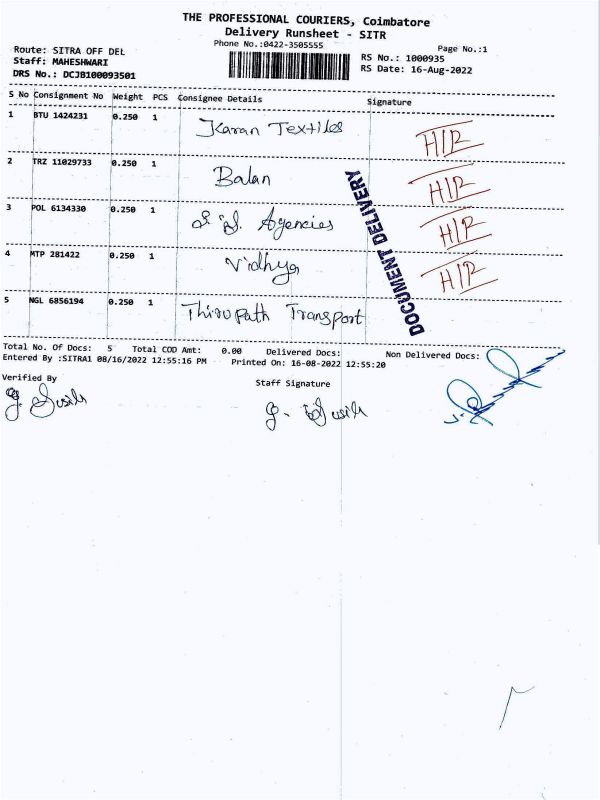 THE PROFESSIONAL COURIERS, Coimbatore
Delivery Runsheet - SITR
Phone No.:0422-3505555
Page No.:1
Route: SITRA OFF DEL
RS No.: 1000935
Staff: MAHESHWARI
RS Date: 16-Aug-2022
DRS No.: DCJB100093501
S No Consignment No Weight PCS Consignee Details Signature
1 BTU 1424231 0.250 1 Karan Textiles H/R
2 TRZ 11029733 0.250 1 Balan H/R
3 POL 6134330 0.250 1 Agencies H/R
4 MTP 281422 0.250 1 Vidhya H/R
5 NGL 6856194 0.250 1 Thirupath Transport
DOCUMENT DELIVERY
Total No. Of Docs: 5 Total COD Amt: 0.00 Delivered Docs: Non Delivered Docs:
Entered By :SITRA1 08/16/2022 12:55:16 PM Printed On: 16-08-2022 12:55:20
Verified By
Staff Signature